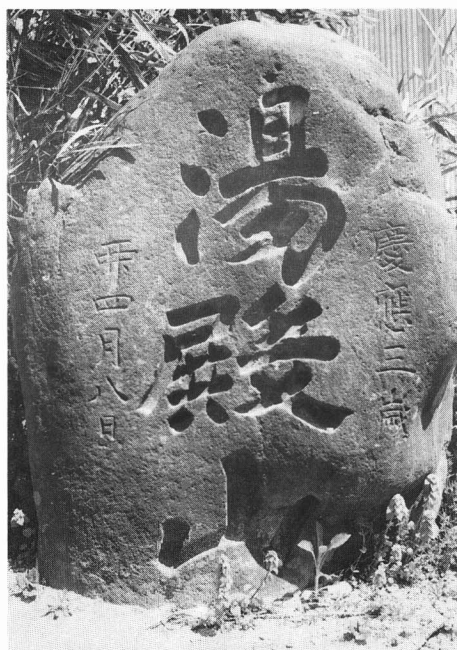 慶應三歳
湯殿山
卯四月八日